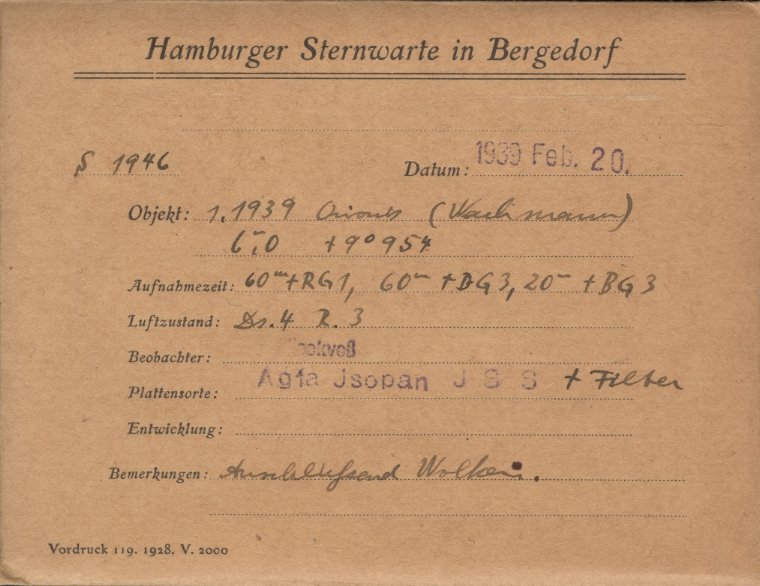 Hamburger Sternwarte in Bergedorf
S 1946
Datum: 1939 Feb. 20.
Objekt: 1.1939 Orionis (Wachmann)
6ᵐ,0 +9°954
Aufnahmezeit: 60ᵐ+RG1, 60ᵐ +BG3, 20ᵐ +BG3
Luftzustand: Ds.4 R.3
Beobachter:
Plattensorte: Agfa Jsopan J S S + Filter
Entwicklung:
Bemerkungen: Anschließend Wolken.
Vordruck 119. 1928. V. 2000